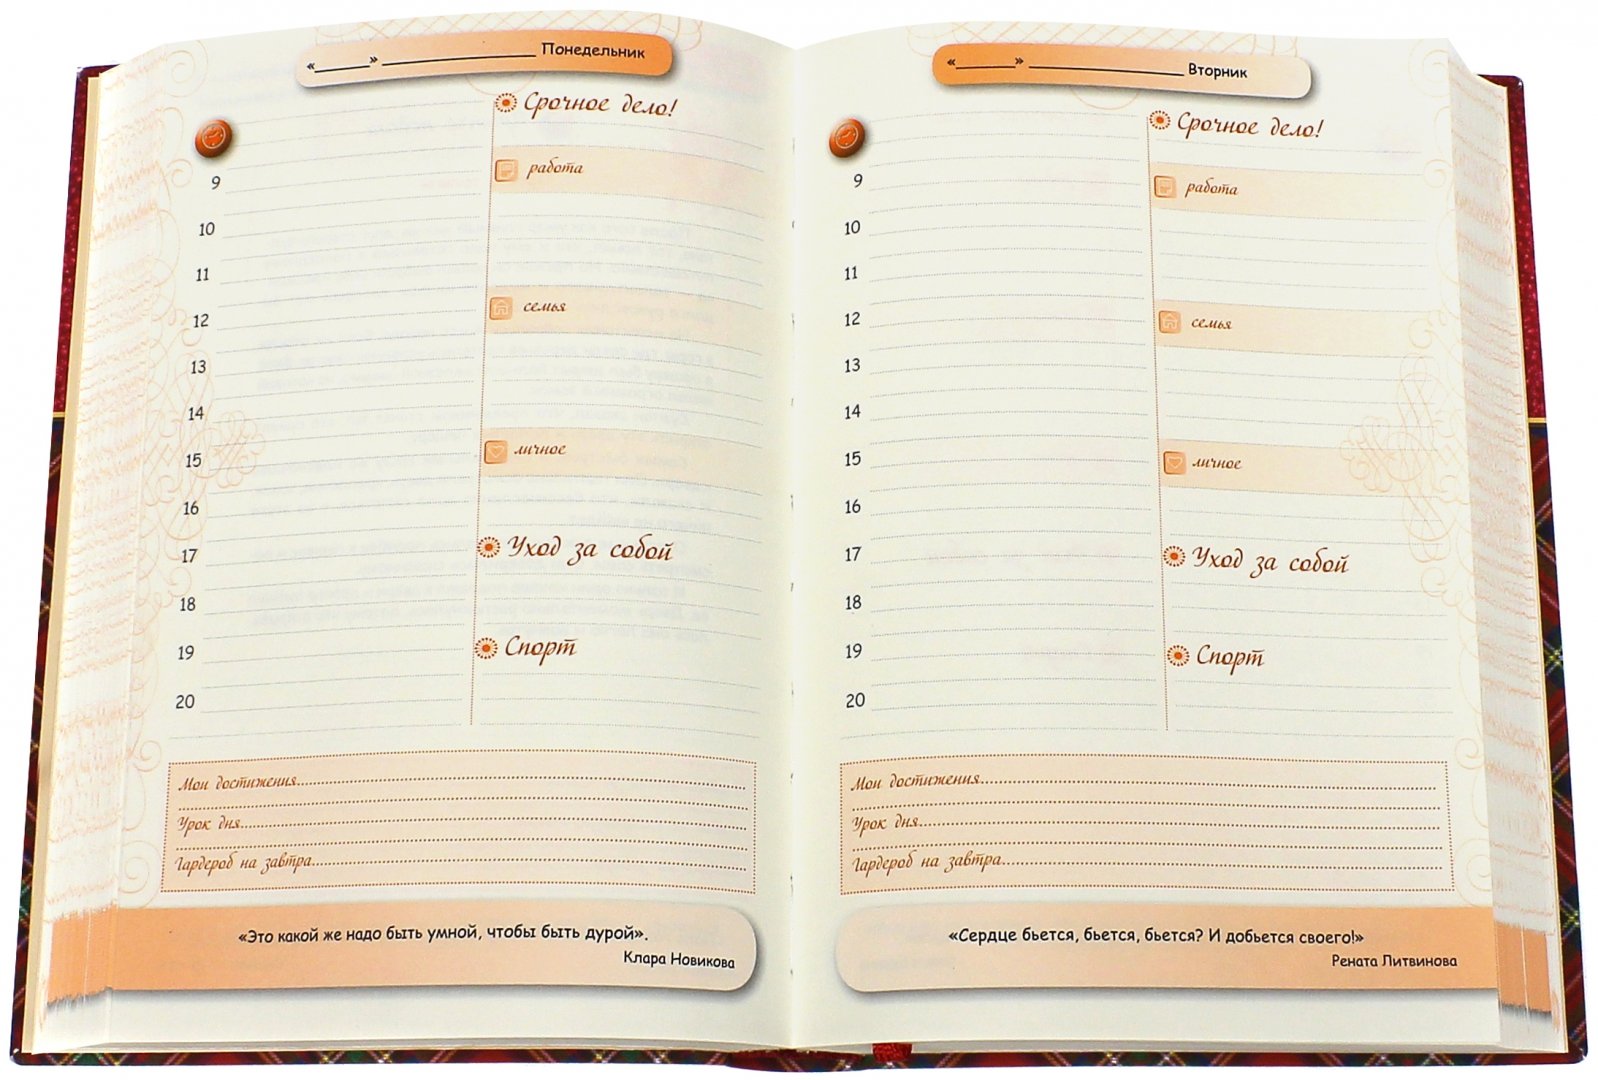 «______» __________________ Понедельник
Срочное дело!
9
работа
10
11
12
семья
13
14
15
личное
16
17
Уход за собой
18
19
Спорт
20
Мои достижения
Урок дня
Гардероб на завтра
«Это какой же надо быть умной, чтобы быть дурой».
Клара Новикова
«______» __________________ Вторник
Срочное дело!
9
работа
10
11
12
семья
13
14
15
личное
16
17
Уход за собой
18
19
Спорт
20
Мои достижения
Урок дня
Гардероб на завтра
«Сердце бьется, бьется, бьется? И добьется своего!»
Рената Литвинова